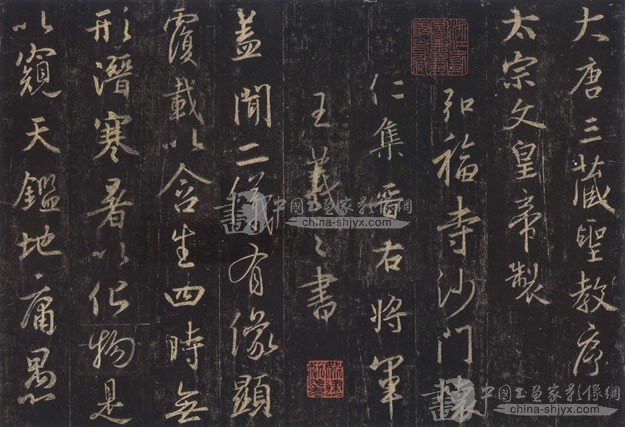 大唐三藏聖教序
太宗文皇帝製
弘福寺沙門懷
仁集晉右將軍
王羲之書
蓋聞二儀有像顯
覆載以含生四時無
形潛寒暑以化物是
以窺天鑑地庸愚
中国书画家影像網
china-shjyx.com
中国书画家影像網
china-shjyx.com